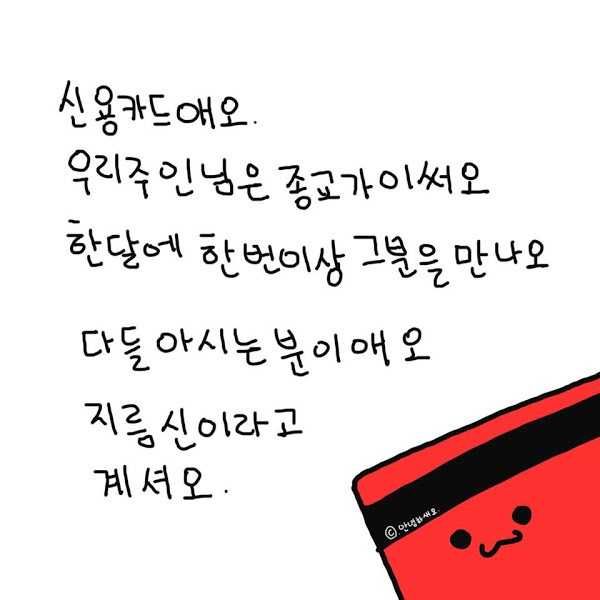 신용카드애오.
우리주인님은 종교가이써오
한달에 한번이상 그분을 만나오
다들 아시는분이애오
지름신이라고
계셔오.
©.안녕하새오.